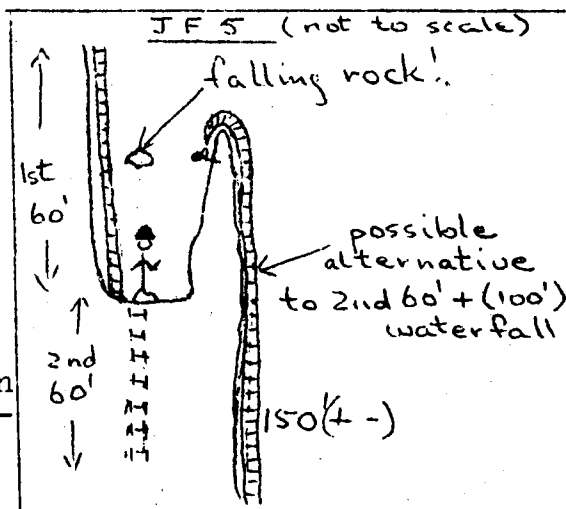 JF5 (not to scale)
falling rock!
1st
60'
possible
alternative
to 2nd 60' + (100')
waterfall
2nd
60'
n
150'(+ -)